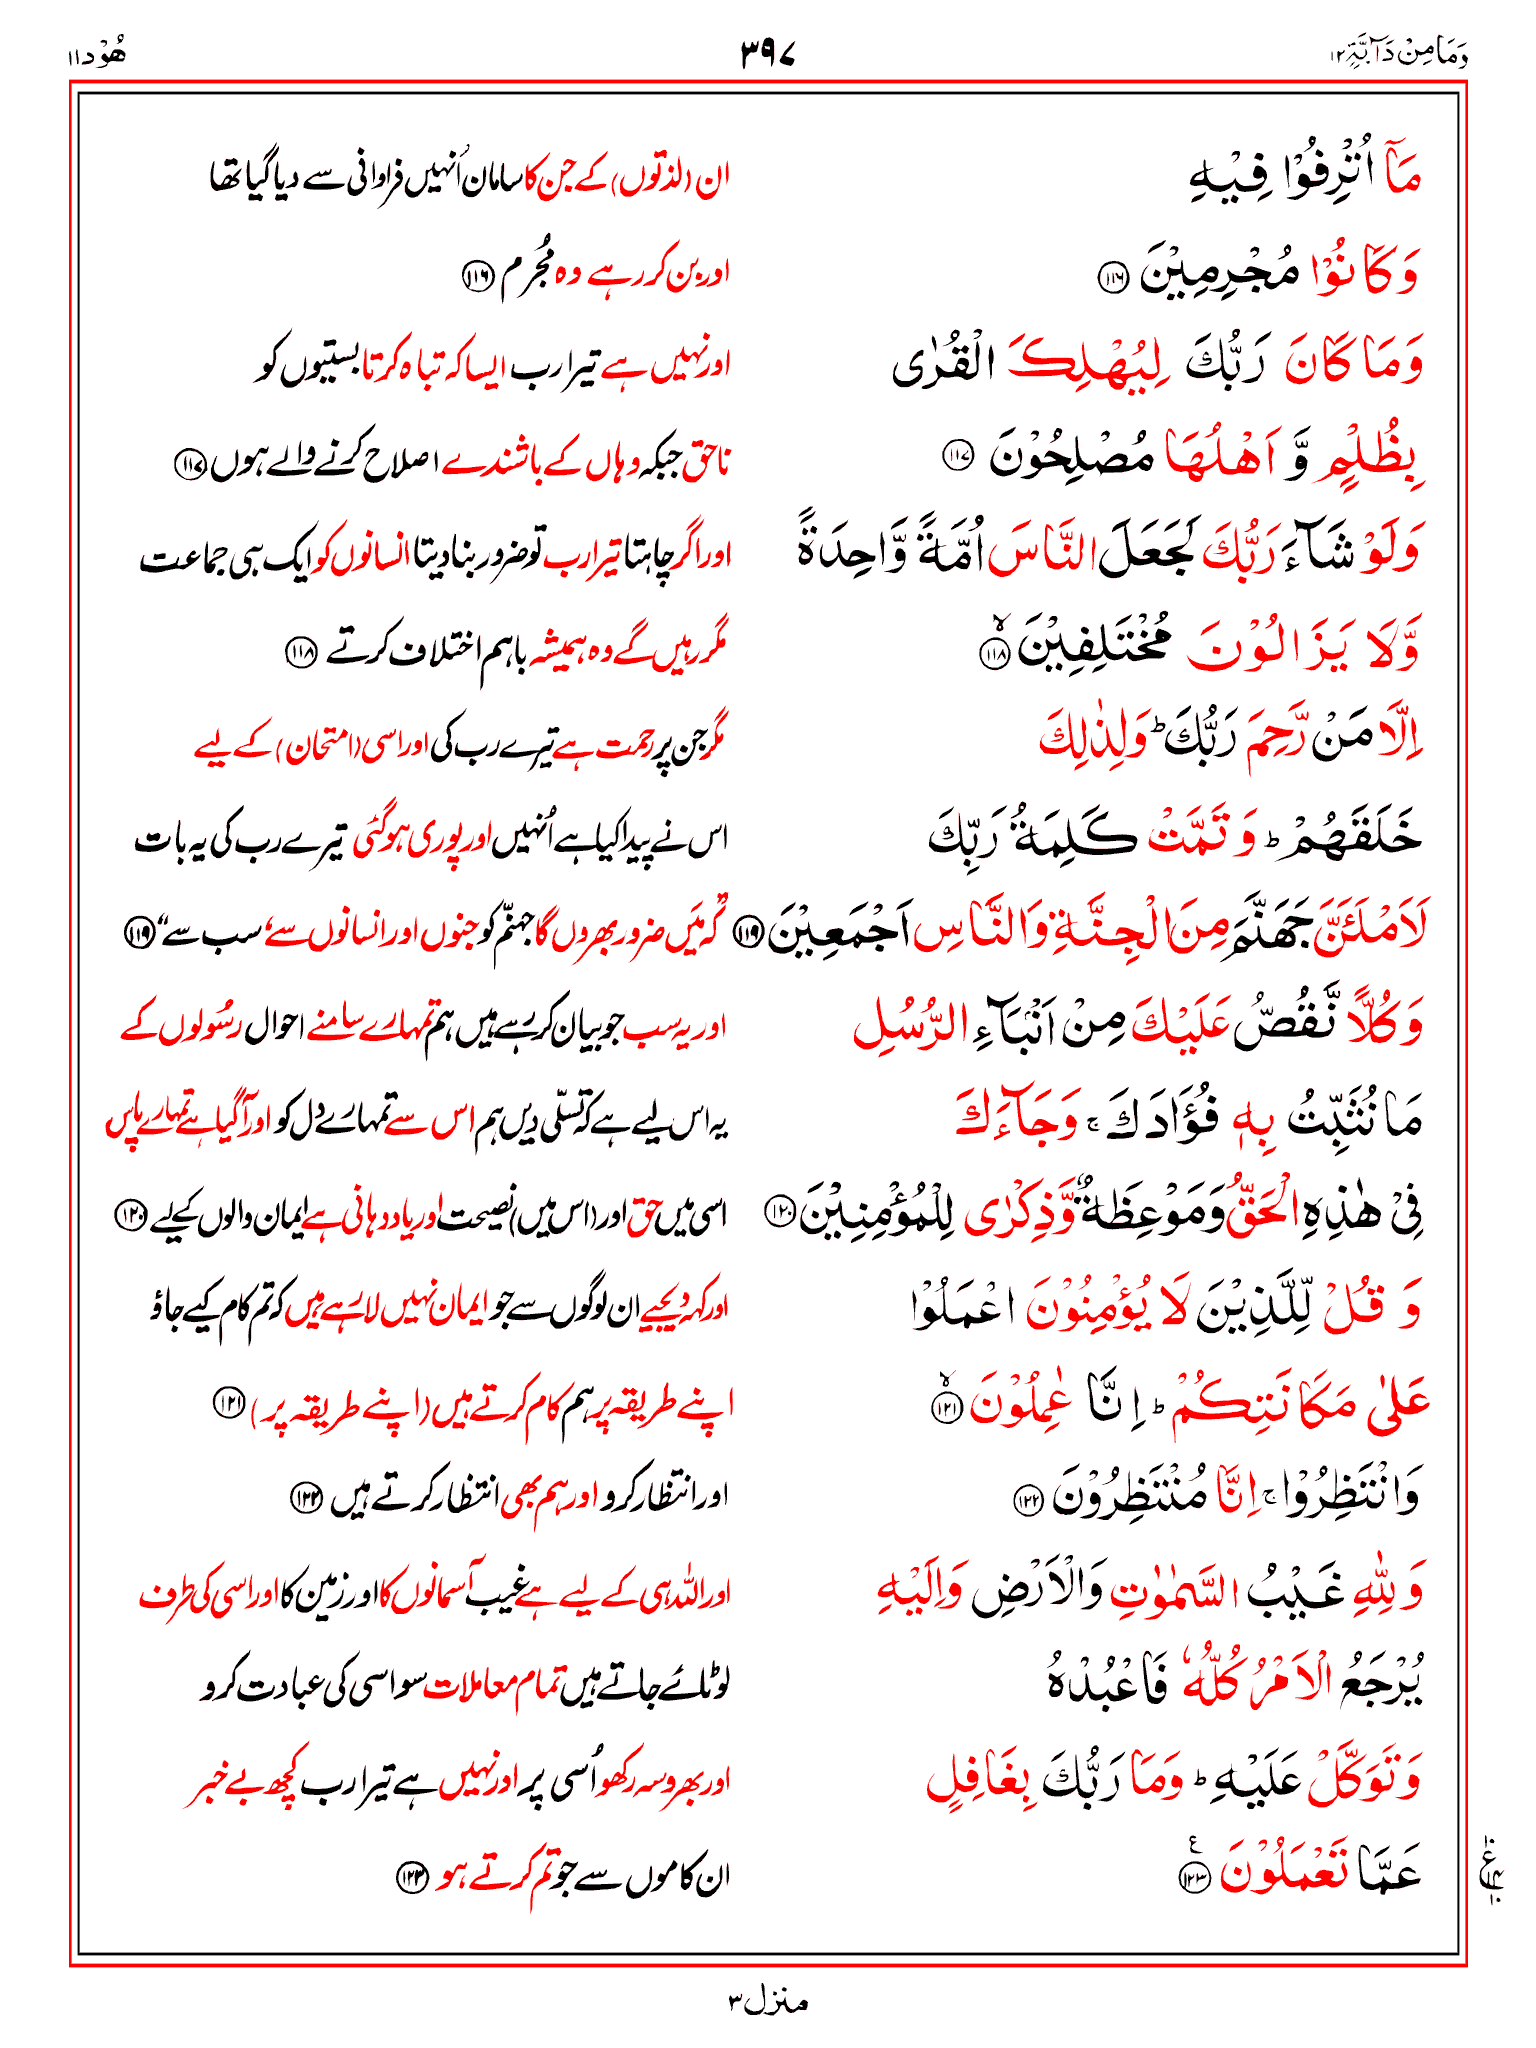 وَمَا مِنْ دَآبَّةٍ ۱۲ ۳۹۷ هُوْد ۱۱
مَآ اُتْرِفُوْا فِيْهِ ان (لذتوں) کے جن کا سامان اُنہیں فراوانی سے دیا گیا تھا
وَكَانُوْا مُجْرِمِيْنَ ۱۱۶ اور بن کر رہے وہ مُجرم ۱۱۶
وَمَا كَانَ رَبُّكَ لِيُهْلِكَ الْقُرٰى اور نہیں ہے تیرا رب ایسا کہ تباہ کرتا بستیوں کو
بِظُلْمٍ وَّ اَهْلُهَا مُصْلِحُوْنَ ۱۱۷ ناحق جبکہ وہاں کے باشندے اصلاح کرنے والے ہوں ۱۱۷
وَلَوْ شَآءَ رَبُّكَ لَجَعَلَ النَّاسَ اُمَّةً وَّاحِدَةً اور اگر چاہتا تیرا رب تو ضرور بنا دیتا انسانوں کو ایک ہی جماعت
وَّلَا يَزَالُوْنَ مُخْتَلِفِيْنَ ۙ۱۱۸ مگر رہیں گے وہ ہمیشہ باہم اختلاف کرتے ۱۱۸
اِلَّا مَنْ رَّحِمَ رَبُّكَ ؕ وَلِذٰلِكَ مگر جن پر رحمت ہے تیرے رب کی اور اسی (امتحان) کے لیے
خَلَقَهُمْ ؕ وَ تَمَّتْ كَلِمَةُ رَبِّكَ اس نے پیدا کیا ہے اُنہیں اور پوری ہوگئی تیرے رب کی یہ بات
لَاَمْلَـَٔنَّ جَهَنَّمَ مِنَ الْجِنَّةِ وَالنَّاسِ اَجْمَعِيْنَ ۱۱۹ کہ ”مَیں ضرور بھروں گا جہنّم کو جنوں اور انسانوں سے‘ سب سے“ ۱۱۹
وَكُلًّا نَّقُصُّ عَلَيْكَ مِنْ اَنْۢبَآءِ الرُّسُلِ اور یہ سب جو بیان کر رہے ہیں ہم تمہارے سامنے احوال رسُولوں کے
مَا نُثَبِّتُ بِهٖ فُؤَادَكَ ۚ وَجَآءَكَ یہ اس لیے ہے کہ تسلّی دیں ہم اس سے تمہارے دل کو اور آ گیا ہے تمہارے پاس
فِيْ هٰذِهِ الْحَقُّ وَمَوْعِظَةٌ وَّذِكْرٰى لِلْمُؤْمِنِيْنَ ۱۲۰ اسی میں حق اور (اس میں) نصیحت اور یاد دہانی ہے ایمان والوں کے لیے ۱۲۰
وَ قُلْ لِّلَّذِيْنَ لَا يُؤْمِنُوْنَ اعْمَلُوْا اور کہہ دیجیے ان لوگوں سے جو ایمان نہیں لا رہے ہیں کہ تم کام کیے جاؤ
عَلٰى مَكَانَتِكُمْ ؕ اِنَّا عٰمِلُوْنَ ۙ۱۲۱ اپنے طریقہ پر ہم کام کرتے ہیں (اپنے طریقہ پر) ۱۲۱
وَانْتَظِرُوْا ۚ اِنَّا مُنْتَظِرُوْنَ ۱۲۲ اور انتظار کرو اور ہم بھی انتظار کرتے ہیں ۱۲۲
وَ لِلّٰهِ غَيْبُ السَّمٰوٰتِ وَالْاَرْضِ وَاِلَيْهِ اور اللہ ہی کے لیے ہے غیب آسمانوں کا اور زمین کا اور اسی کی طرف
يُرْجَعُ الْاَمْرُ كُلُّهٗ فَاعْبُدْهُ لوٹائے جاتے ہیں تمام معاملات سو اسی کی عبادت کرو
وَتَوَكَّلْ عَلَيْهِ ؕ وَمَا رَبُّكَ بِغَافِلٍ اور بھروسہ رکھو اُسی پر اور نہیں ہے تیرا رب کچھ بے خبر
عَمَّا تَعْمَلُوْنَ ۱۲۳ ان کاموں سے جو تم کرتے ہو ۱۲۳
۱۰ ع ۱۴ ۱۰
منزل ۳